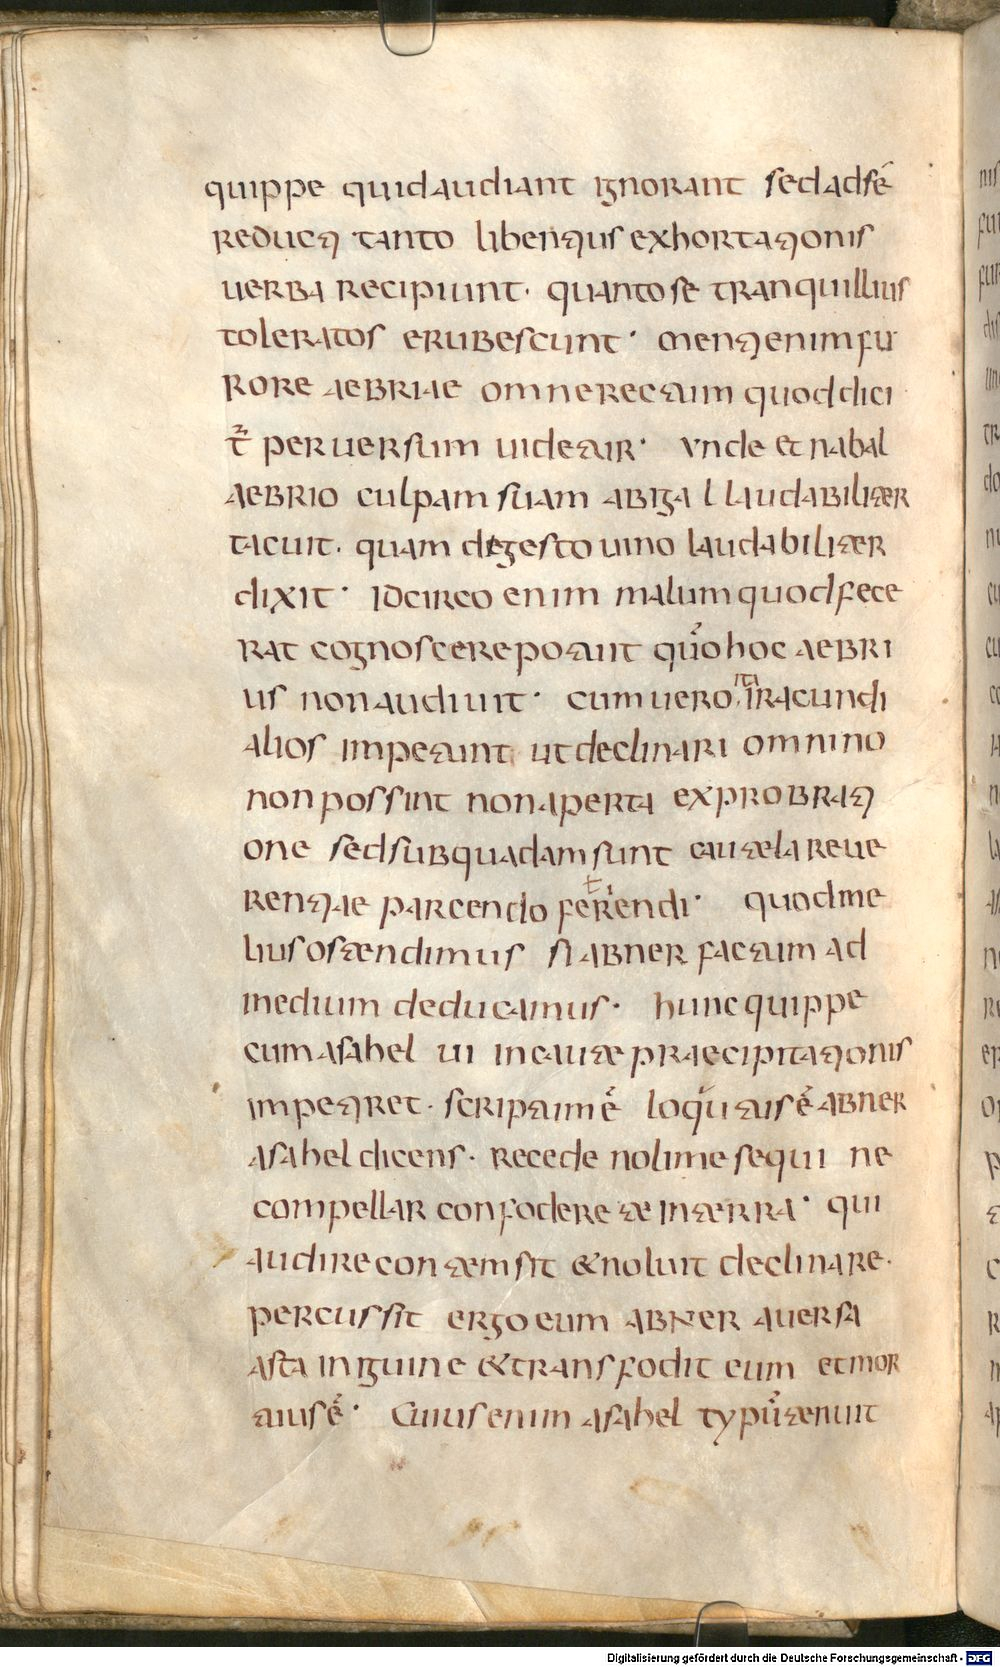 quippe quid audiant ignorant sed ad sē
reducti tanto libentius exhortationis
uerba recipiunt · quanto se tranquillius
toleratos erubescunt · mentienim fu
rore aebriae omne rectum quod dici
tr̄ peruersum uidetur · unde et nabal
aebrio culpam suam abigal laudabiliter
tacuit · quam degesto uino laudabiliter
dixit · idcirco enim malum quod fece
rat cognoscere potuit quo hoc aebri
us non audiuit · cum uero ita iracundi
alios impetunt ut declinari omnino
non possint non aperta exprobrati
one sed sub quadam sunt cautela reue
rentiae parcendo ferendi · quod me
lius ostendimus si abner factum ad
medium deducamus · hunc quippe
cum asahel ui incautae praecipitationis
impetiret · scriptum ē locutus ē abner
asahel dicens · recede noli me sequi ne
compellar confodere te in terra · qui
audire contemsit & noluit declinare ·
percussit ergo eum abner auersa
asta in iguine & transfodit eum et mor
tuus ē · Cuius enim asahel typū tenuit
Digitalisierung gefördert durch die Deutsche Forschungsgemeinschaft - DFG